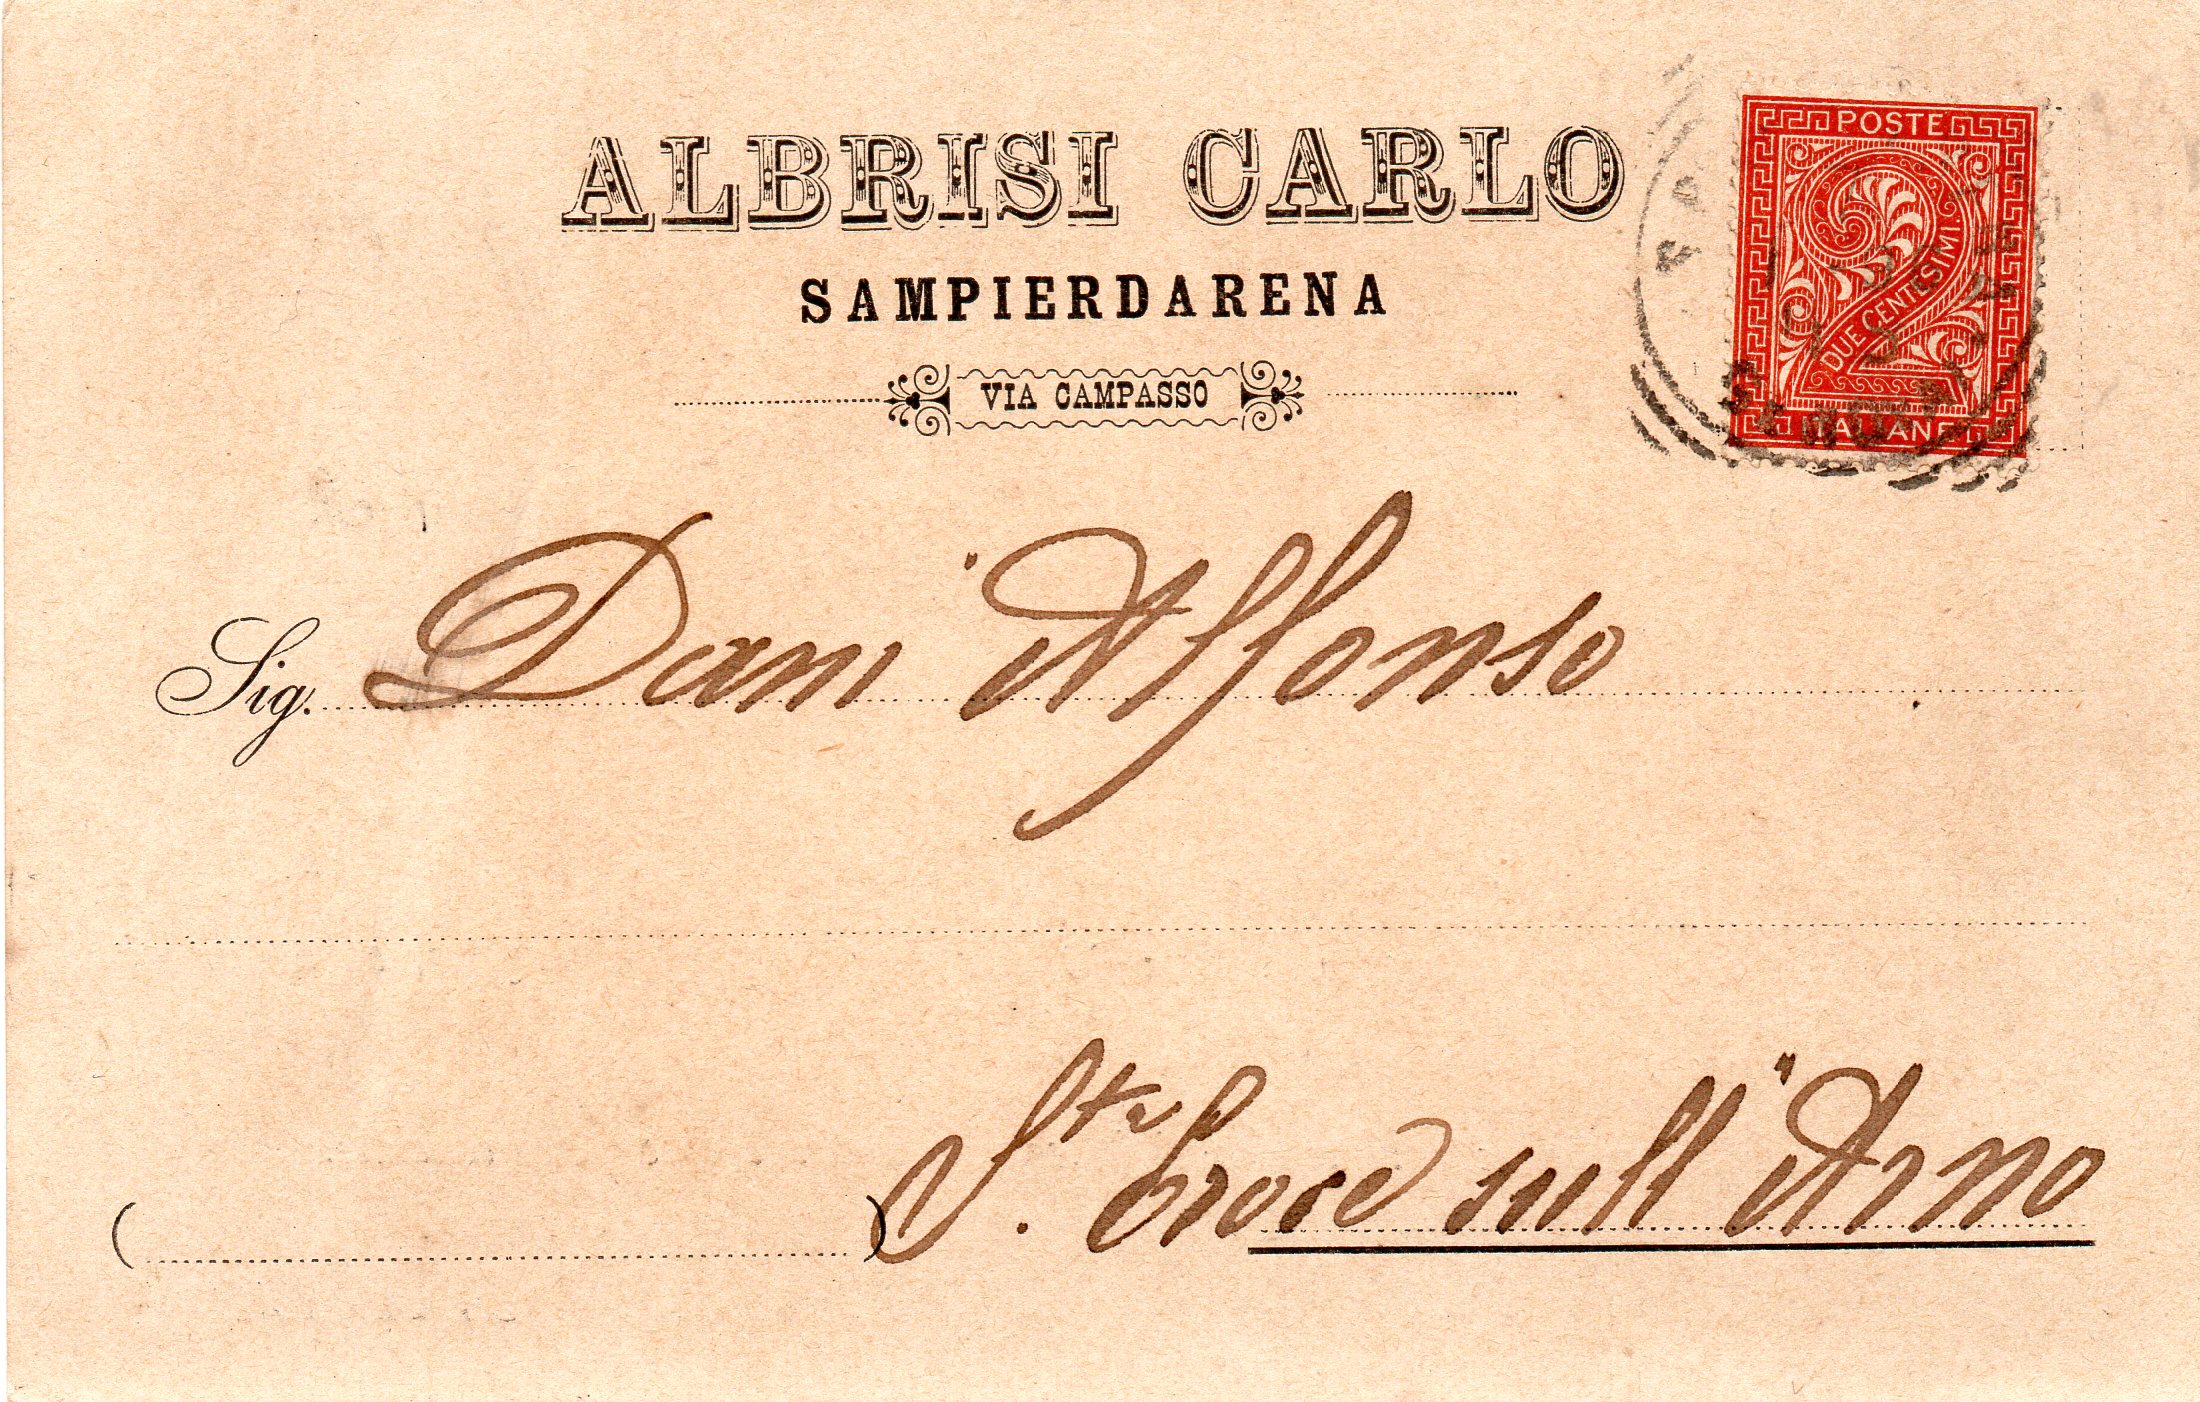 ALBRISI CARLO
SAMPIERDARENA
VIA CAMPASSO
POSTE
DUE CENTESIMI
ITALIANE
Sig. Dani Alfonso
Sta. Croce sull'Arno